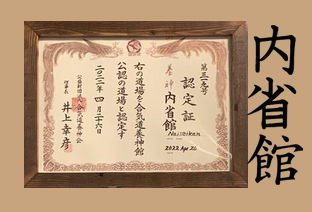 第三九号
認定証
養神
内省館
Naiseikan
2022.Apr.26
右の道場を合気道養神館
公認の道場と認定す
二〇二二年四月二十六日
公益財団法人合気道養神会
理事長 井上幸彦
内省館